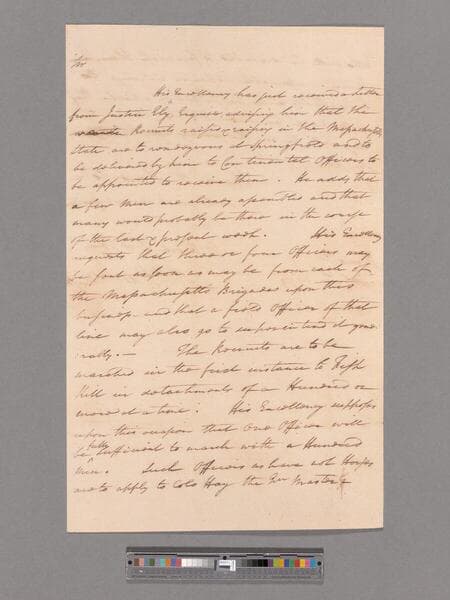 Sir
His Excellency has just received a letter
from Justin Ely Esquire, advising him that the
Recruits raised & raising in the Massachusetts
State are to rendezvous at Springfield and to
be delivered by him to Continental Officers to
be appointed to receive them. He adds that
a few Men are already assembled and that
many would probably be there in the course
of the last & present week. His Excellency
requests that three or four Officers may
be sent as soon as may be from each of
the Massachusetts Brigades upon this
business and that a field Officer of that
line may also go to superintend it gene
rally. — The Recruits are to be
marched in the first instance to Fish
Kill in detachments of a Hundred or
more at a time. His Excellency supposes
upon this occasion that One Officer will
be fully sufficient to march with a Hundred
Men. Such Officers as have not Horses
are to apply to Colo Hay the Qr Master